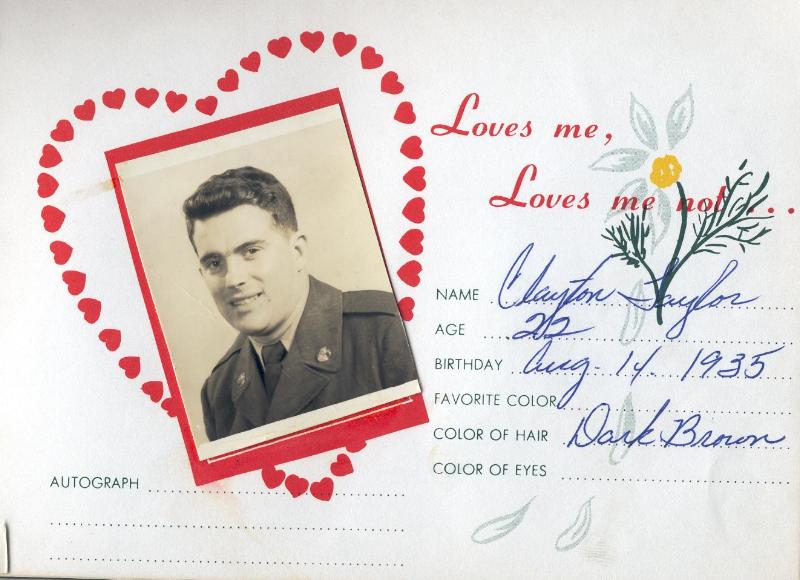 Loves me,
Loves me not...
NAME Clayton Taylor
AGE 22
BIRTHDAY Aug. 14. 1935
FAVORITE COLOR
COLOR OF HAIR Dark Brown
COLOR OF EYES
AUTOGRAPH